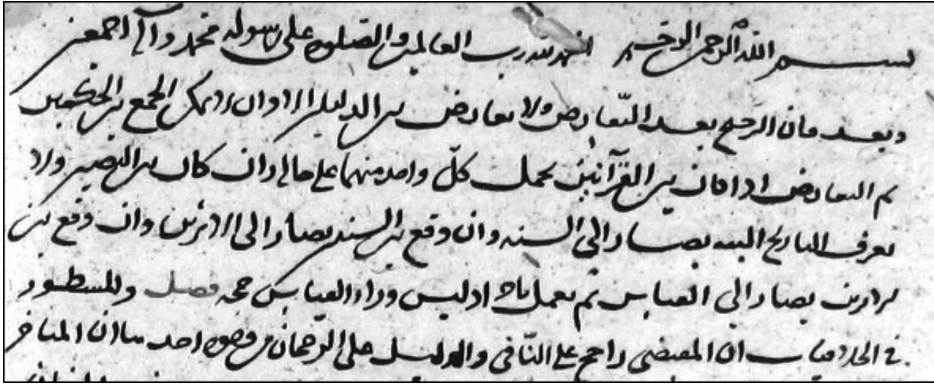 بسم الله الرحمن الرحيم الحمد لله رب العالمين والصلوة على رسوله محمد وآله اجمعين
وبعد فان الترجيح بعد التعارض ولا تعارض بين الدليلين الا وان لا يمكن الجمع بين الحكمين
ثم التعارض اذا كان بين القرآنين يحمل كل واحد منهما على حال وان كان بين النصين ولا
يعرف التاريخ البتة يصار الى السنة وان وقع بين السنتين يصار الى وان وقع بين
يصار الى القياس ثم يعمل اذ ليس وراء القياس حجة فصل والمسطور
في ان المقتضى راجح على النافي والدليل على الرجحان من وجوه احدها ان